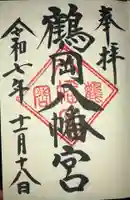 奉拝
鶴岡八幡宮
令和七年十一月十八日